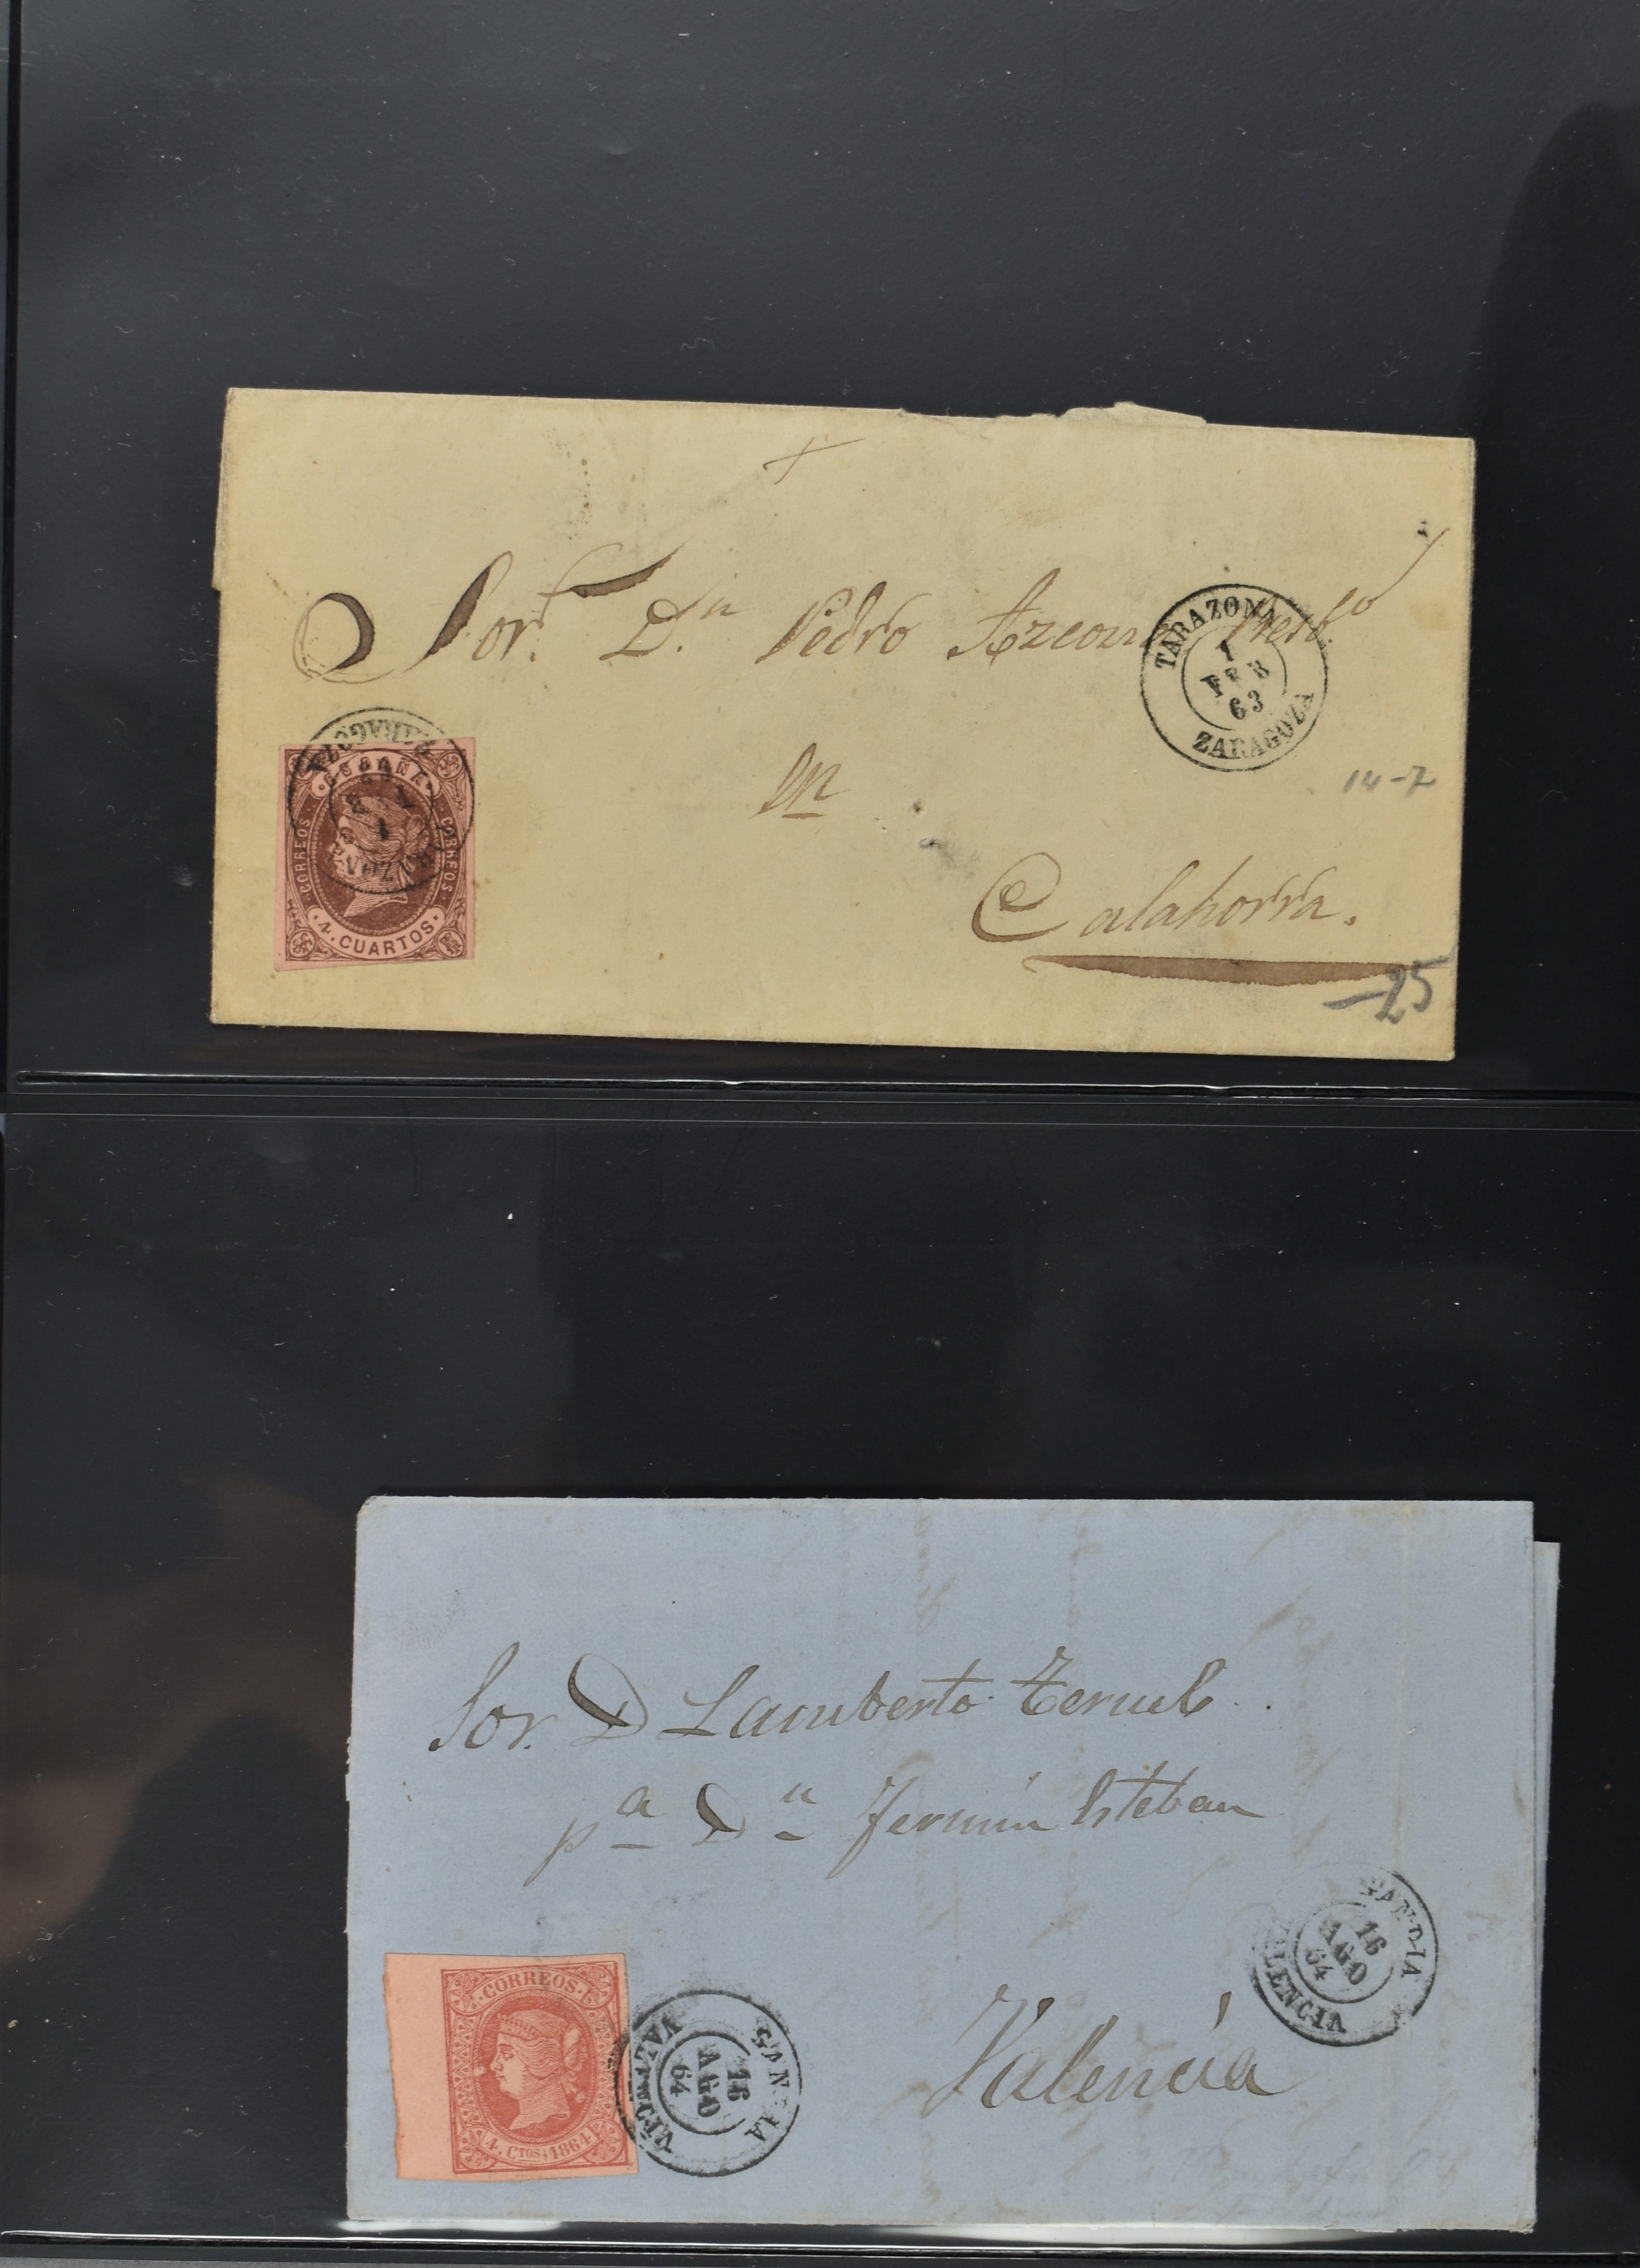 Sor. Dn Pedro Azcona Presbo
TARAZONA
1
FEB
63
ZARAGOZA
en
14-7
ESPAÑA
CORREOS
CORREOS
4. CUARTOS
Calahorra.
—25
Sor. D Lamberto Teruel.
pa Dn Fermin Esteban
GANDIA
16
AGO
64
VALENCIA
CORREOS
4. CTOS. 1864
GANDIA
16
AGO
64
VALENCIA
Valencia